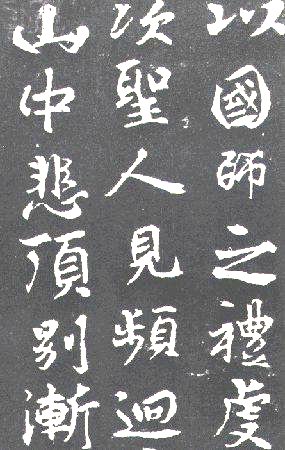 以國師之禮虔
次聖人見頻迴
山中悲頂別漸